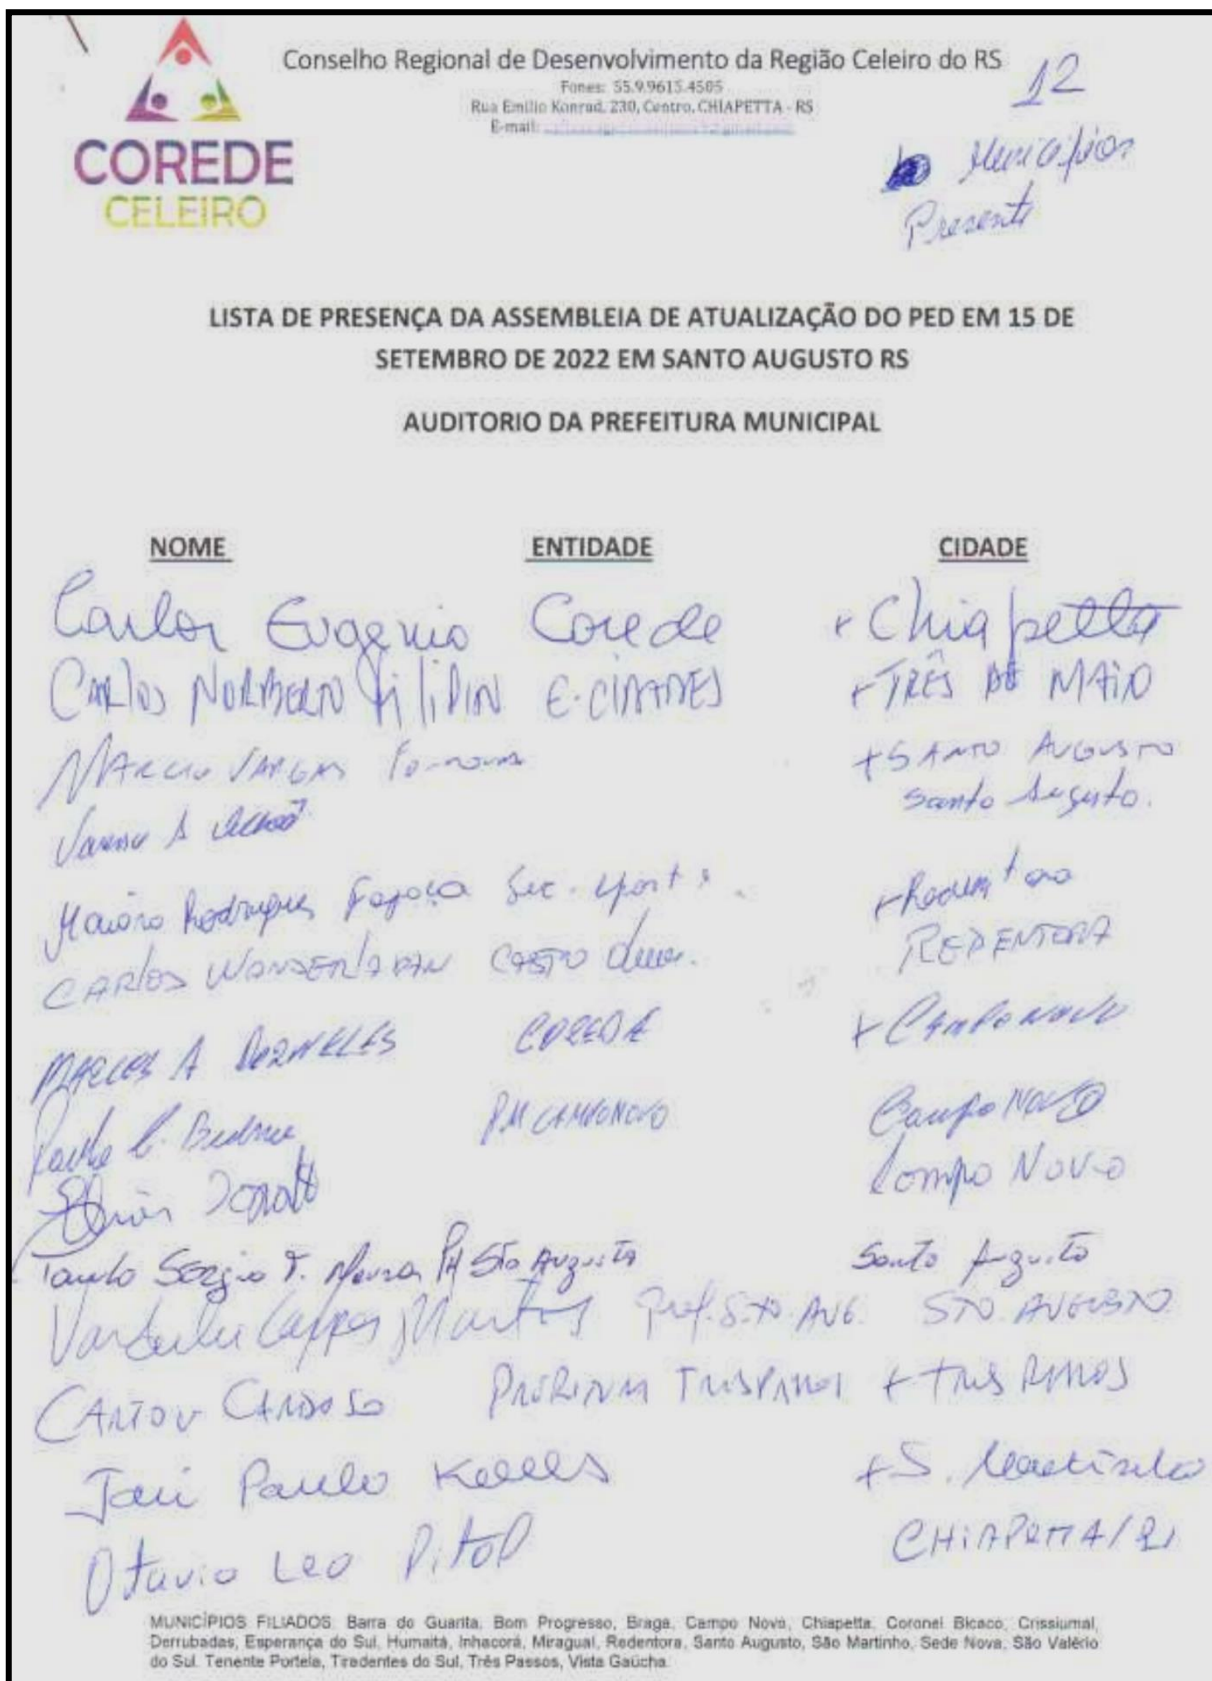 COREDE
CELEIRO
Conselho Regional de Desenvolvimento da Região Celeiro do RS
Fones: 55.9.9615.4505
Rua Emilio Konrad, 230, Centro, CHIAPETTA - RS
E-mail:
12
Municípios
Presente
LISTA DE PRESENÇA DA ASSEMBLEIA DE ATUALIZAÇÃO DO PED EM 15 DE
SETEMBRO DE 2022 EM SANTO AUGUSTO RS
AUDITORIO DA PREFEITURA MUNICIPAL
NOME ENTIDADE CIDADE
Carlos Eugenio Corede + Chiapetta
CARLOS NORBERTO E-CIDADES + TRÊS DE MAIO
MARCIO VARGAS + SANTO AUGUSTO
Santo Augusto.
Rodrigues Sec.
CARLOS CASTO REDENTORA
MARCOS A DORNELES COREDE + CAMPO NOVO
P.M CAMPO NOVO Campo Novo
Campo Novo
Paulo Sergio F. Moura PM Sto Augusto Santo Augusto
Martins Pref. STO. AUG. STO. AUGUSTO
CARDOSO + TRES PASSOS
Jari Paulo + S. Martinho
Otavio Leo Pitol CHIAPETTA/RS
MUNICÍPIOS FILIADOS: Barra do Guarita, Bom Progresso, Braga, Campo Novo, Chiapetta, Coronel Bicaco, Crissiumal,
Derrubadas, Esperança do Sul, Humaitá, Inhacorá, Miraguaí, Redentora, Santo Augusto, São Martinho, Sede Nova, São Valério
do Sul, Tenente Portela, Tiradentes do Sul, Três Passos, Vista Gaúcha.